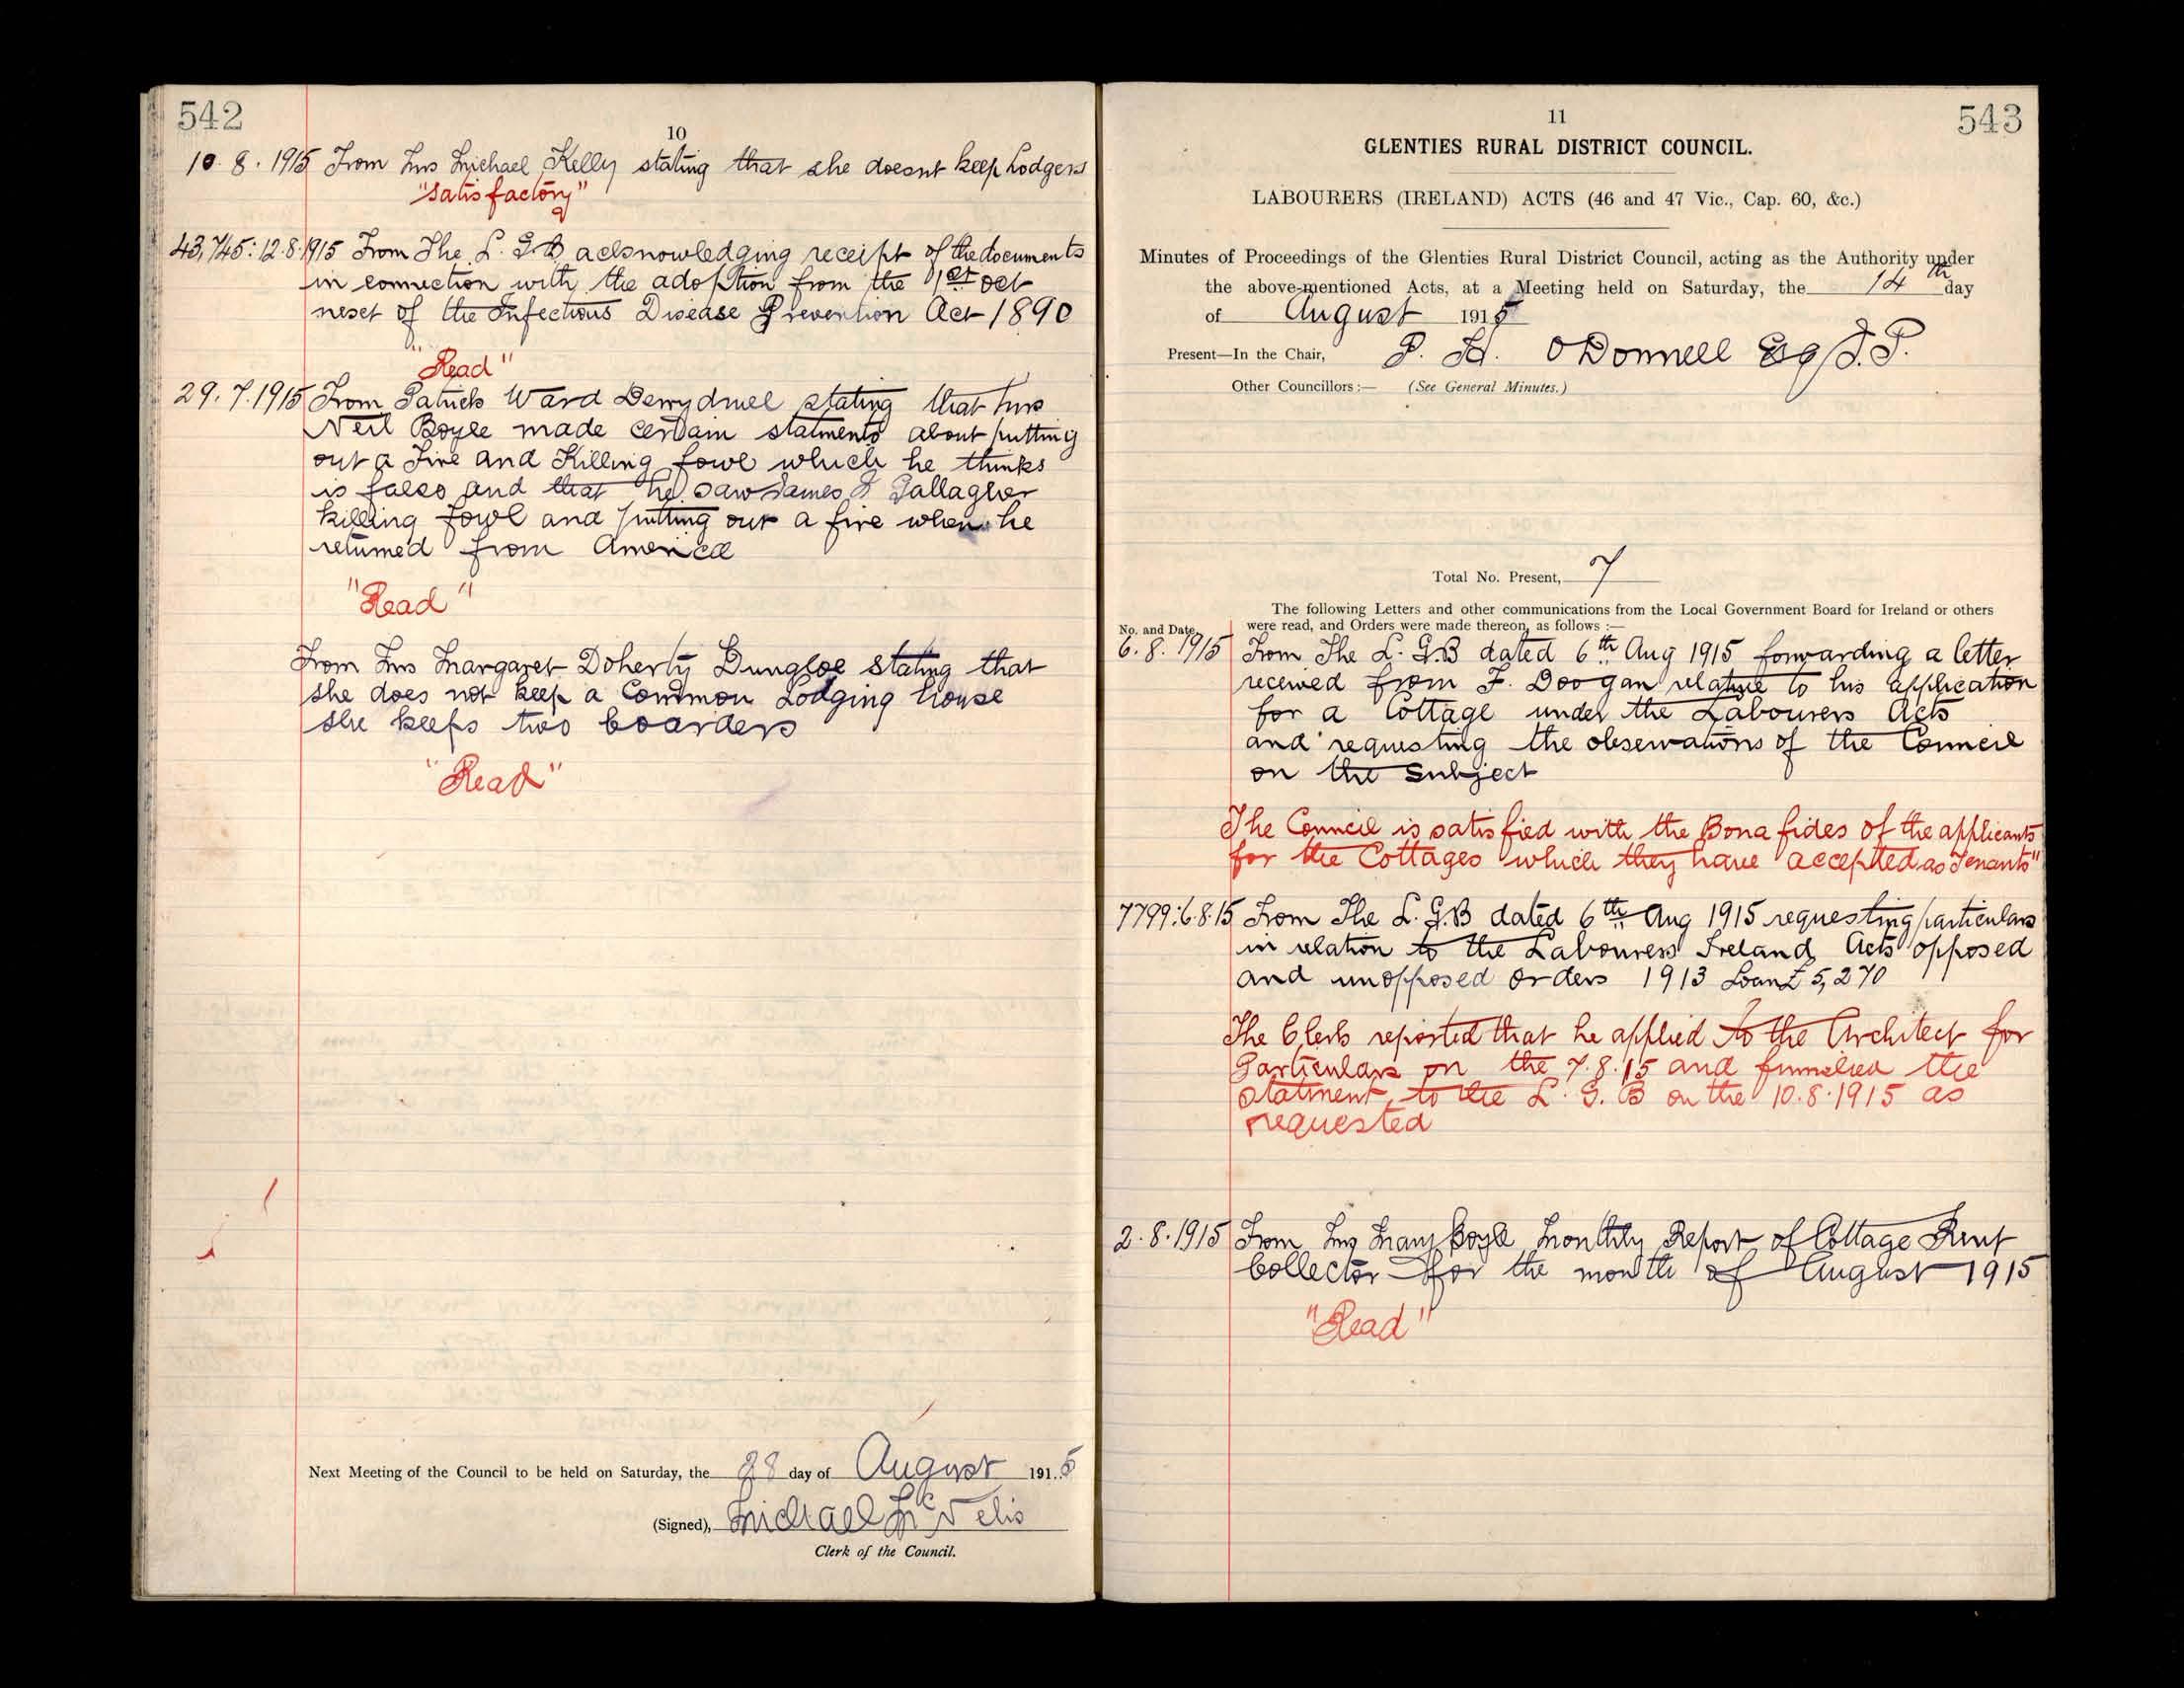 542
10
10.8.1915 From Mrs Michael Kelly stating that she doesnt keep Lodgers
"Satisfactory"
43,745:12.8.1915 From The L. G B acknowledging receipt of the documents
in connection with the adoption from the 1st Oct
next of the Infectious Disease Prevention Act 1890
"Read"
29.7.1915 From Patrick Ward Derrydruel stating that Mrs
Neil Boyle made certain statments about putting
out a Fire and Killing fowl which he thinks
is false and that he saw James Gallagher
killing fowl and putting out a fire when he
returned from America
"Read"
From Mrs Margaret Doherty Dungloe stating that
she does not keep a Common Lodging house
she keeps two boarders
"Read"
Next Meeting of the Council to be held on Saturday, the 28 day of August 191.5
(Signed), Michael McNelis
Clerk of the Council.
543
11
GLENTIES RURAL DISTRICT COUNCIL.
LABOURERS (IRELAND) ACTS (46 and 47 Vic., Cap. 60, &c.)
Minutes of Proceedings of the Glenties Rural District Council, acting as the Authority under
the above-mentioned Acts, at a Meeting held on Saturday, the 14th day
of August 1915
Present—In the Chair, P. H. O'Donnell Esq J.P.
Other Councillors:— (See General Minutes.)
Total No. Present, 7
The following Letters and other communications from the Local Government Board for Ireland or others
No. and Date. were read, and Orders were made thereon, as follows :—
6.8.1915 From The L. G.B dated 6th Aug 1915 forwarding a letter
received from F. Doogan relative to his application
for a Cottage under the Labourers Acts
and requesting the observations of the Council
on the subject
The Council is satisfied with the Bona fides of the applicants
for the Cottages which they have accepted as Tenants"
7799:6.8.15 From The L. G.B dated 6th Aug 1915 requesting particulars
in relation to the Labourers Ireland Acts opposed
and unopposed orders 1913 Loan £5,270
The Clerk reported that he applied to the Architect for
Particulars on the 7.8.15 and furnished the
Statment to the L. G. B on the 10.8.1915 as
requested
2.8.1915 From Mrs Mary Boyle Monthly Report of Cottage Rent
Collector for the month of August 1915
"Read"